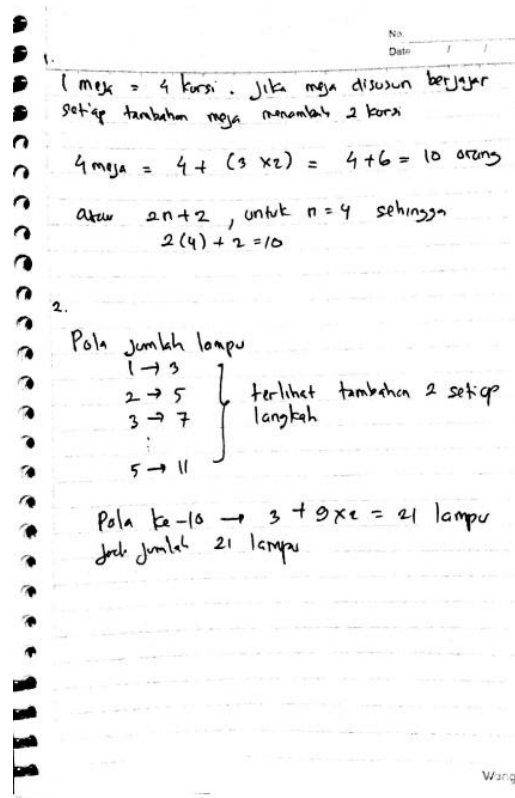 No.
Date / /
1.
1 meja = 4 kursi. Jika meja disusun berjajar
setiap tambahan meja menambah 2 kursi
4 meja = 4 + (3 x2) = 4+6 = 10 orang
atau 2n+2, untuk n = 4 sehingga
2(4) + 2 =10
2.
Pola jumlah lampu
1 → 3
2 → 5
3 → 7
⋮
5 → 11
terlihat tambahan 2 setiap
langkah
Pola ke-10 → 3 + 9x2 = 21 lampu
jadi jumlah 21 lampu